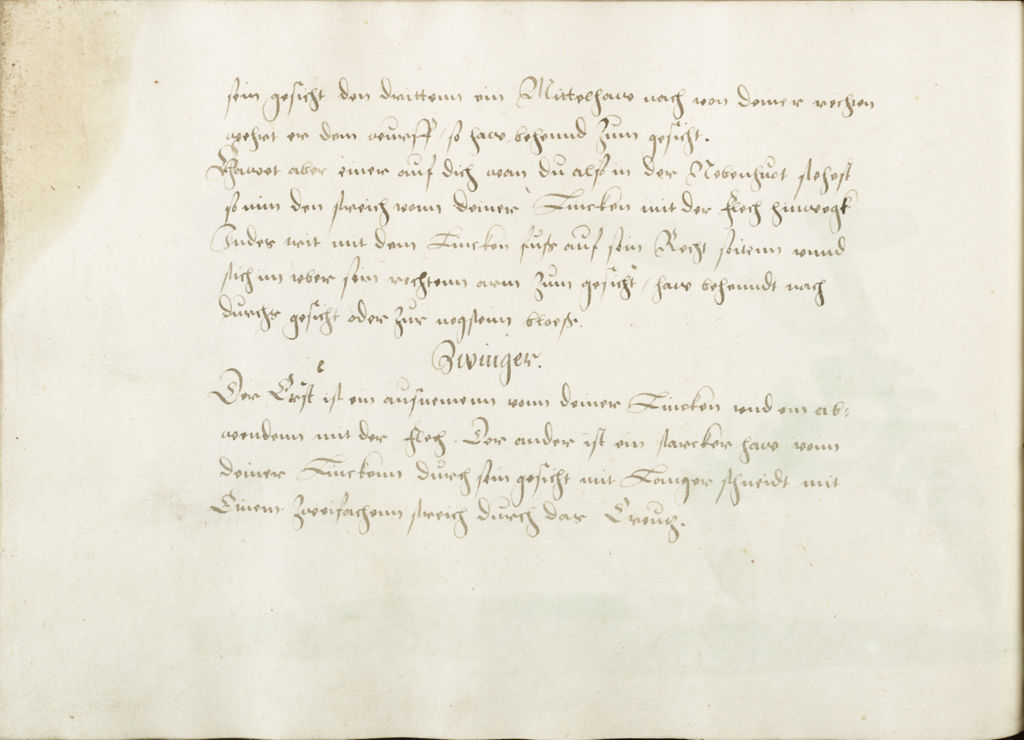 sein gesicht den drittenn ein Mittelhaw nach von deiner rechten
wehrt er dem wurff / so haw behennd zum gesicht.
Hawet aber einer auf dich wan du alß in der Nebenhuot stehest
so nim den streich vonn deiner Lincken mit der flech hinwegk
Inder trit mit dem Lincken fuß auf sein Recht seitenn vnnd
stich im vber sein rechtenn arm zum gesicht / haw behenndt nach
durchs gesicht oder zur negstenn bloeß.
Zwinger.
Der Erst ist ein ausnemenn vonn deiner Lincken vnd ein ab-
wendenn mit der flech. Der ander ist ein starcker haw vonn
deiner Linckenn durch sein gesicht mit Langer schneidt mit
Einem zweifachenn streich durch das Creutz.